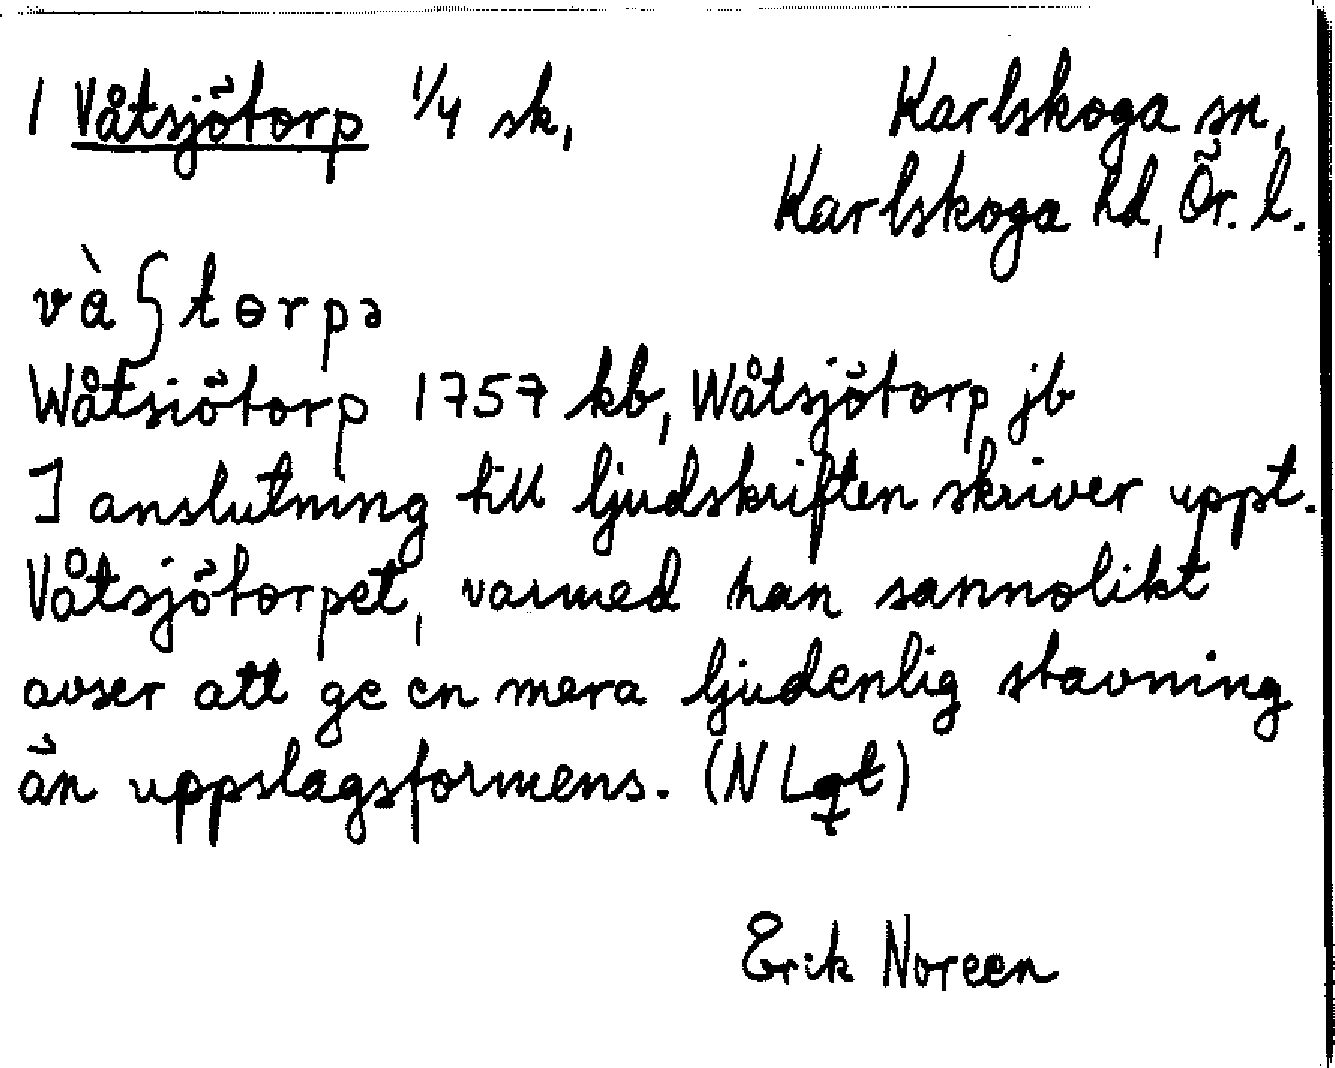 1 Våtsjötorp 1/4 sk, Karlskoga sn,
Karlskoga hd, Ör. l.
và ʃtɵrpə
Wåtsiötorp 1757 kb, Wåtsjötorp jb
I anslutning till ljudskriften skriver uppt.
Våtsjötorpet, varmed han sannolikt
avser att ge en mera ljudenlig stavning
än uppslagsformens. (N Lgt)
Erik Noreen